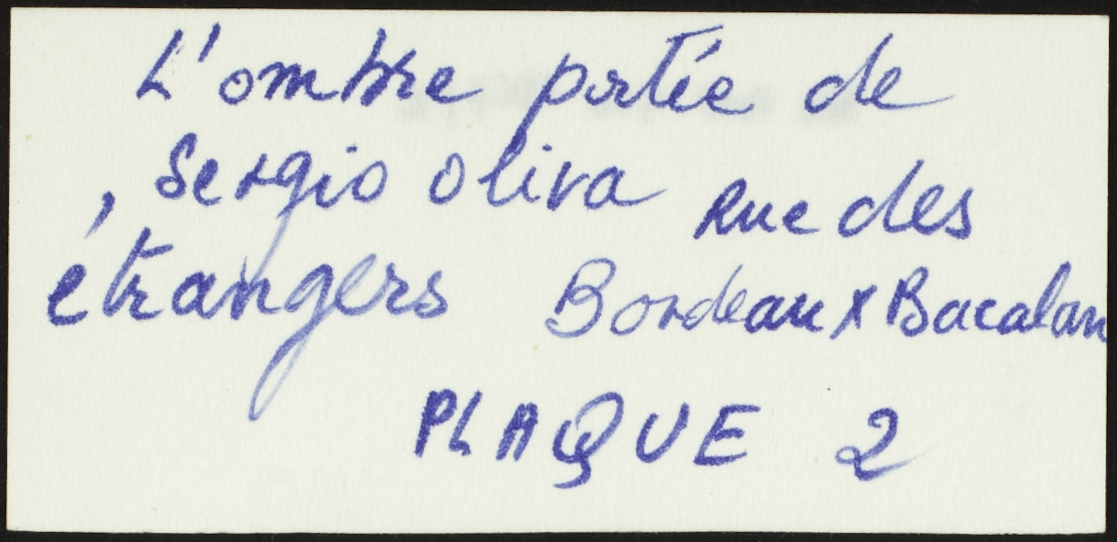 L'ombre portée de
Sergio oliva Rue des
étrangers Bordeaux Bacalan
PLAQUE 2